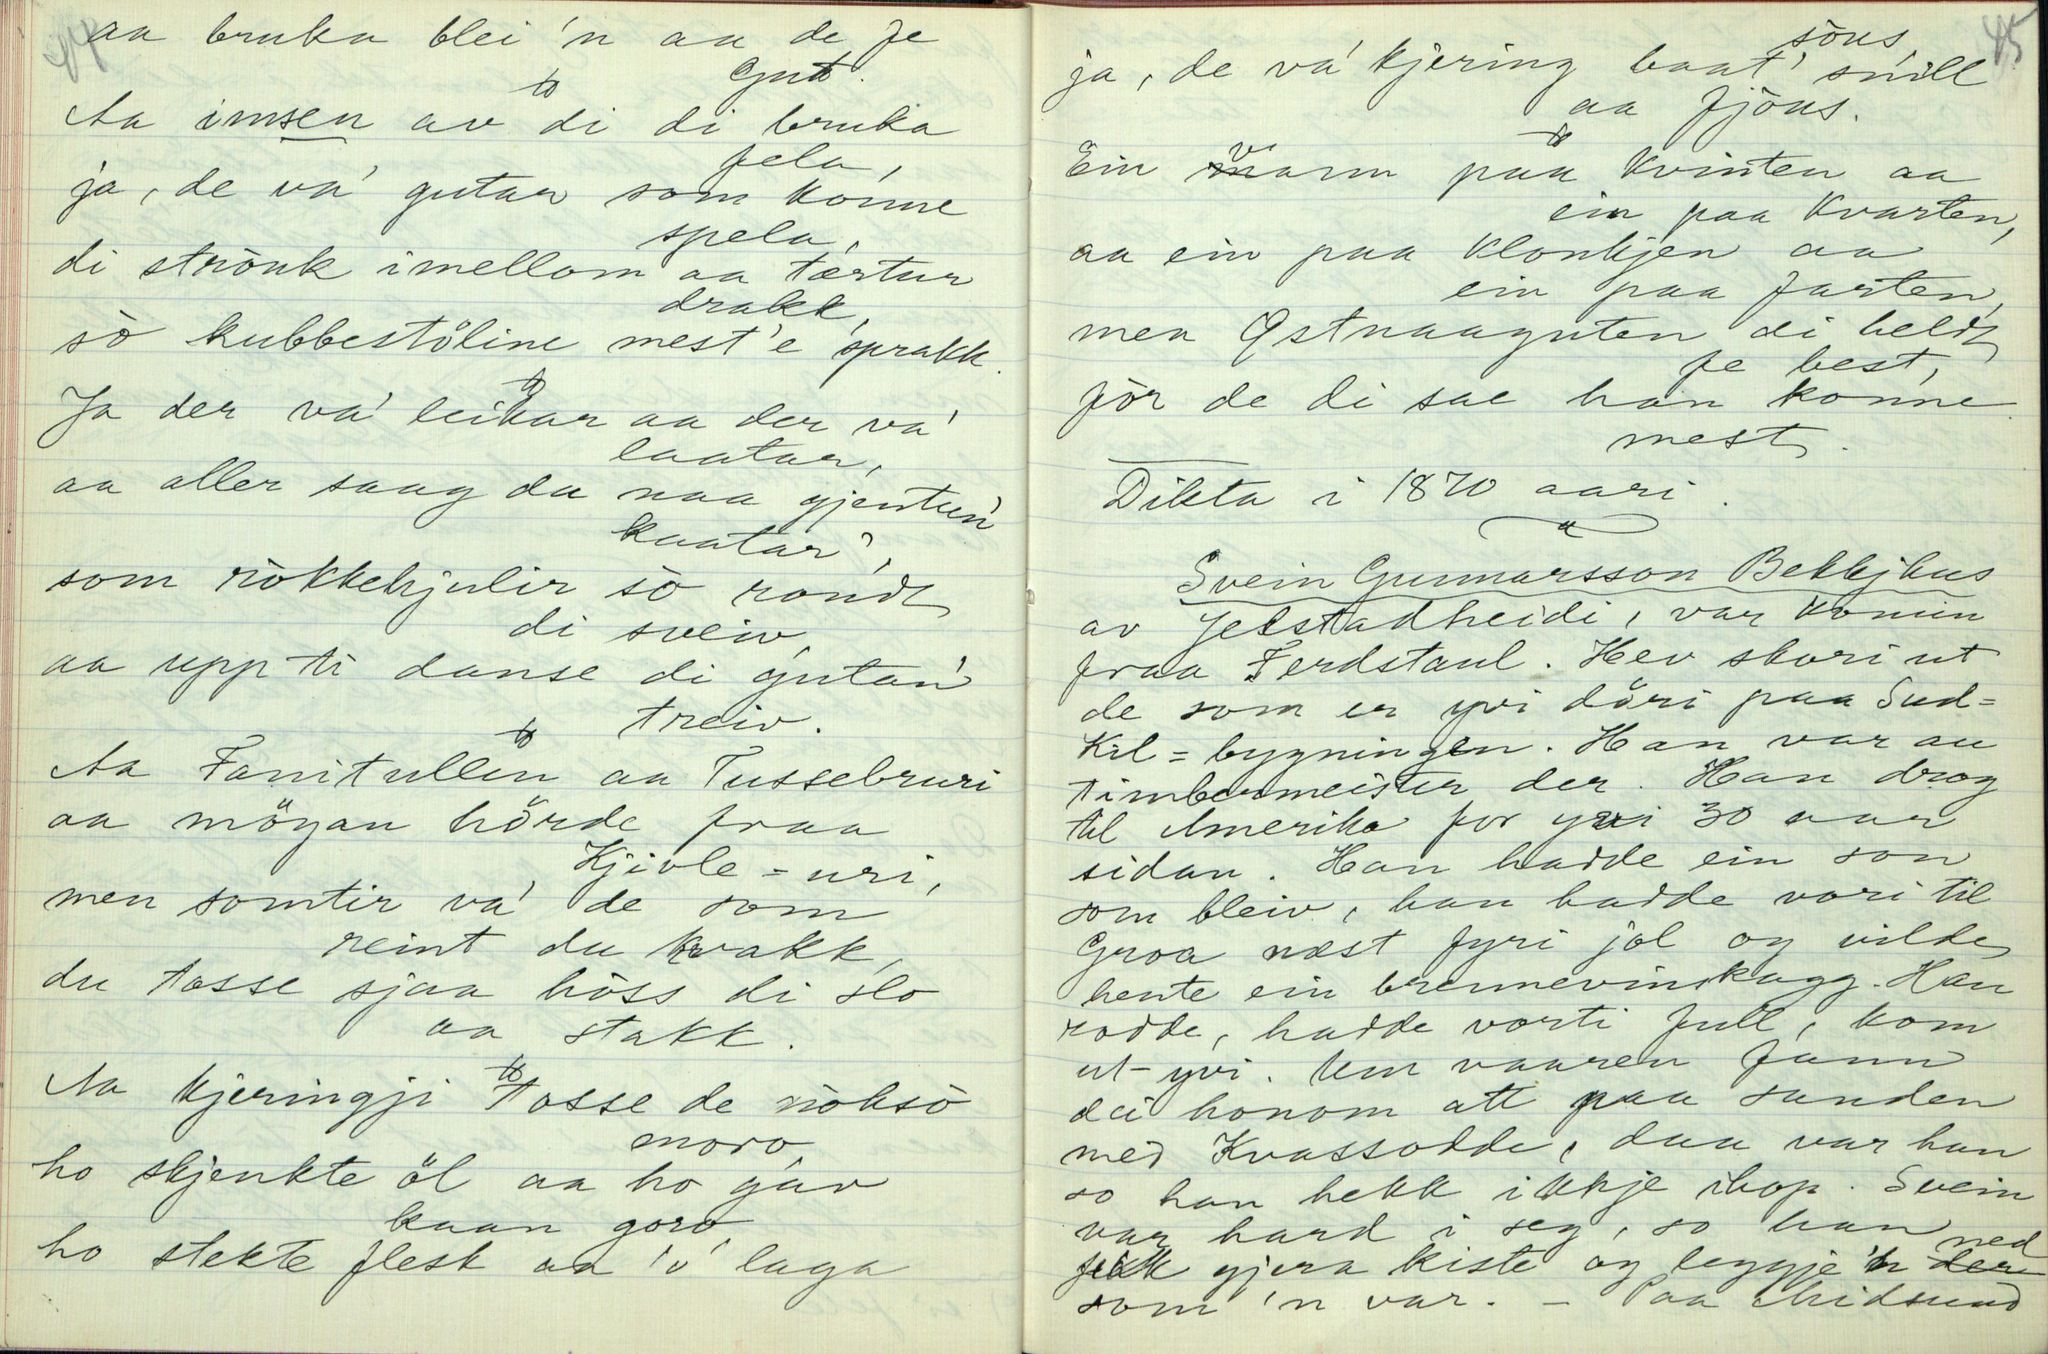 44
aa bruka blei 'n aa de fe
Gut.
Aa imsen av di di bruka
fela,
ja, de va' gutar som konne
spela,
di strönk imellom aa tærtur
drakk,
sò kubbestöline mest'e sprakk.
Ja der va' leikar aa der va'
laatar,
aa aller saag du naa gjentun'
kaatar',
som rökkehjulir sò rondt
di sveiv,
aa upp ti danse di gutan'
treiv.
Aa Fanitullen aa Tussebruri
aa möyan hörde fraa
Kjivle-uri,
men somtir va' de som
reint du kvakk,
du tosse sjaa höss di slo
aa stakk.
Aa kjeringji tosse de nöksò
moro,
ho skjenkte öl aa ho gav
kaan goro,
ho stekte flesk aa 'o' laga
45
söus,
ja, de va' kjering baat' snill
aa fjöus.
Ein varm paa Kvinten aa
ein paa Kvarten,
aa ein paa Klonkjen aa
ein paa farten,
men Østnaaguten di heldt
fe best,
för de di sae han konne
mest.
Dikta i 1870 aari.
Svein Gunnarsson Bekkjhus
av Jelstadheidi, var komin
fraa Ferdstaul. Hev skori ut
de som er yvi döri paa Sud=
Kil=bygningen. Han var au
timbermeister der. Han drog
til Amerika for yvi 30 aar
sidan. Han hadde ein son
som bleiv, han hadde vori til
Groa næst fyri jol og vilde
hente ein brennevinskagg. Han
rodde, hadde vorti full, kom
ut-yvi. Um vaaren fann
dei honom att paa sanden
med Kvassodde, daa var han
so han hekk ikkje ihop. Svein
var hard i seg, so han
fekk gjera kiste og leggje 'n ned
som 'n var. – Paa Midsund